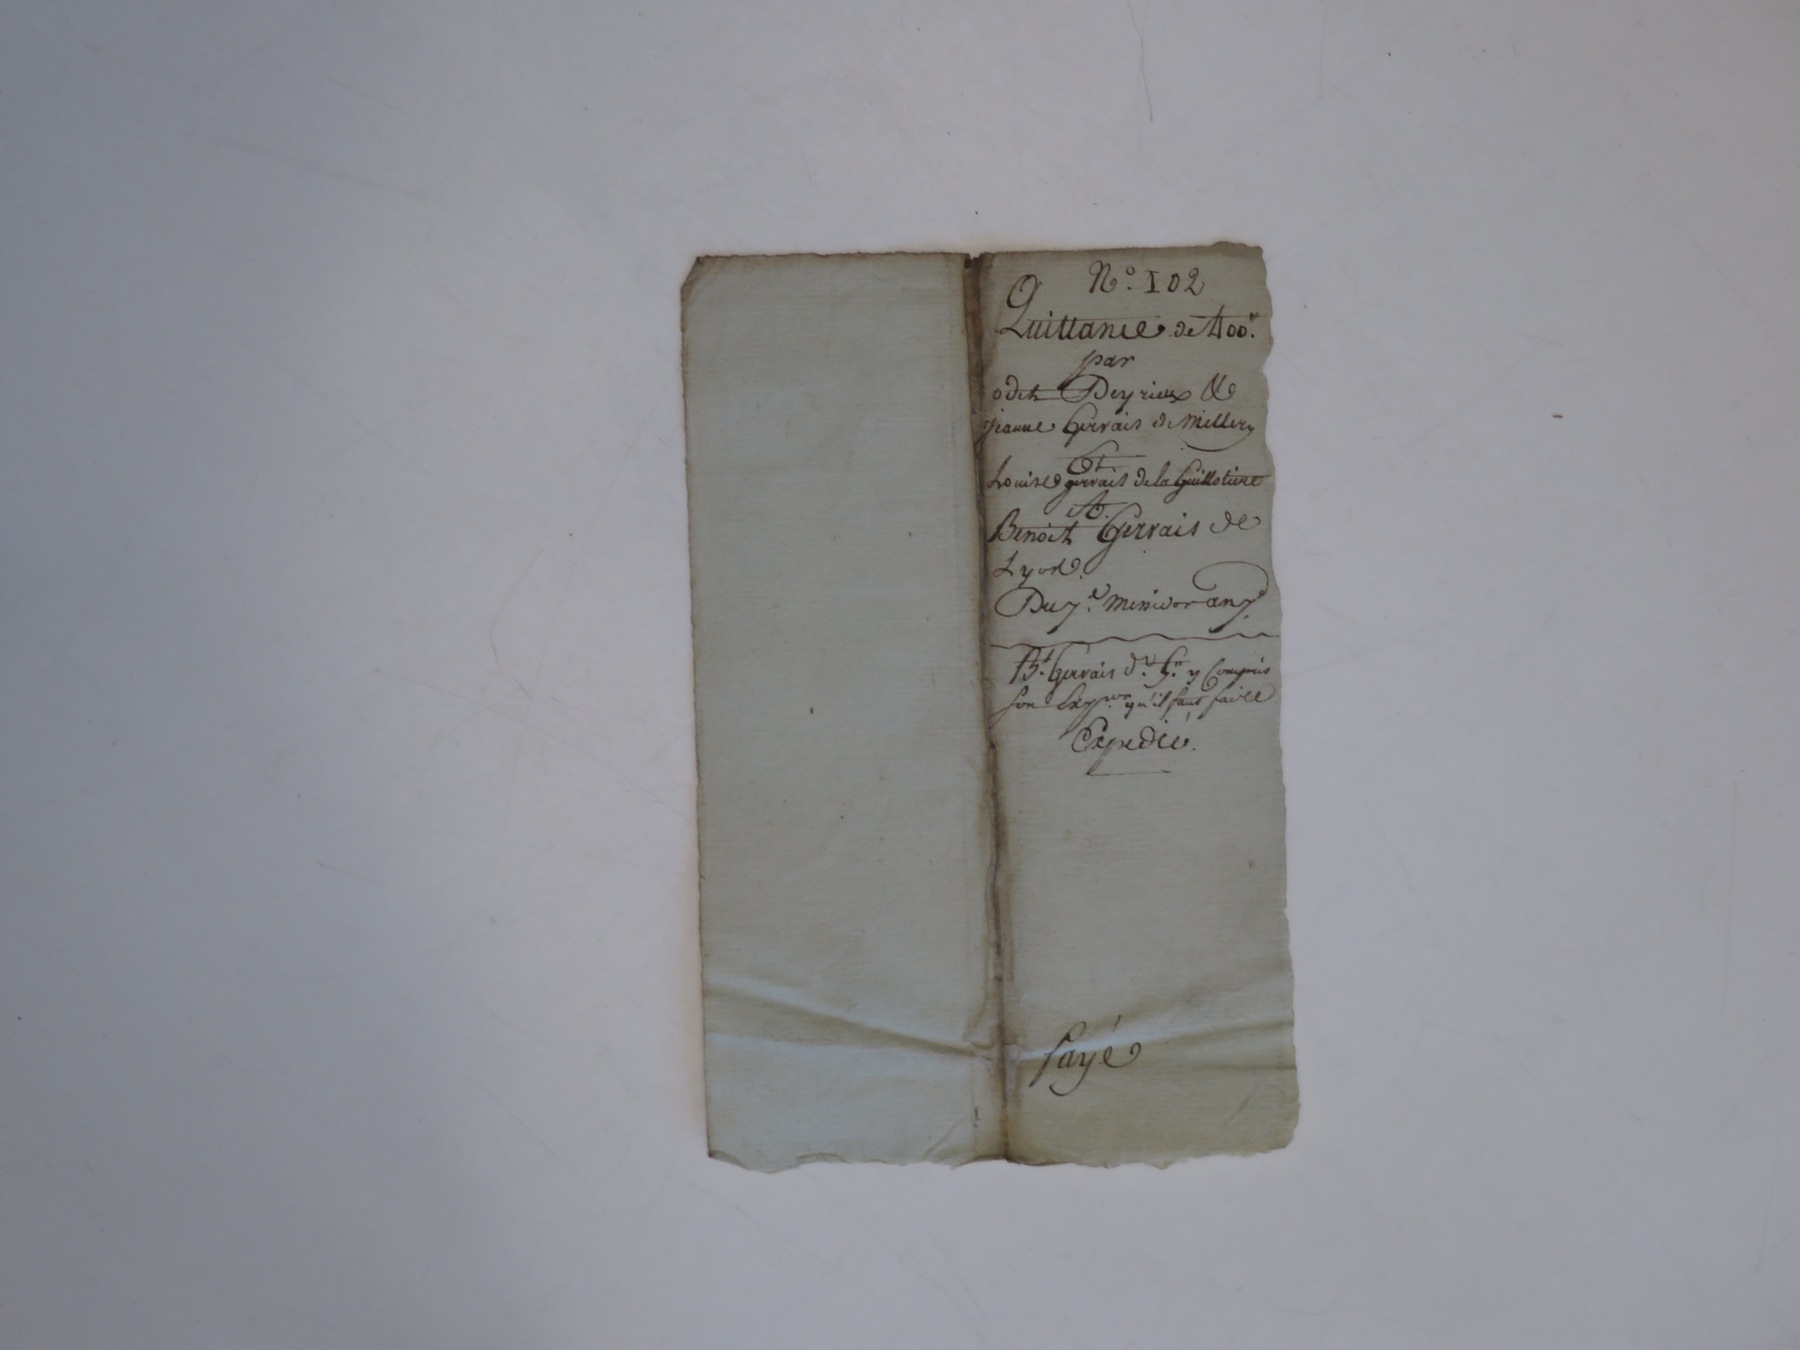 N.° 102
Quittance de 400.#
par
odet Deyrieux &
jeanne Gervais de Millery
Et
Louise gervais de la Guillotiere
et
Benoit Gervais de
Lyon.
Du 7.e messidor an 7.e
B.t Gervais d.t y Compris
son Exp.on qu'il faut faire
Expedié.
payé